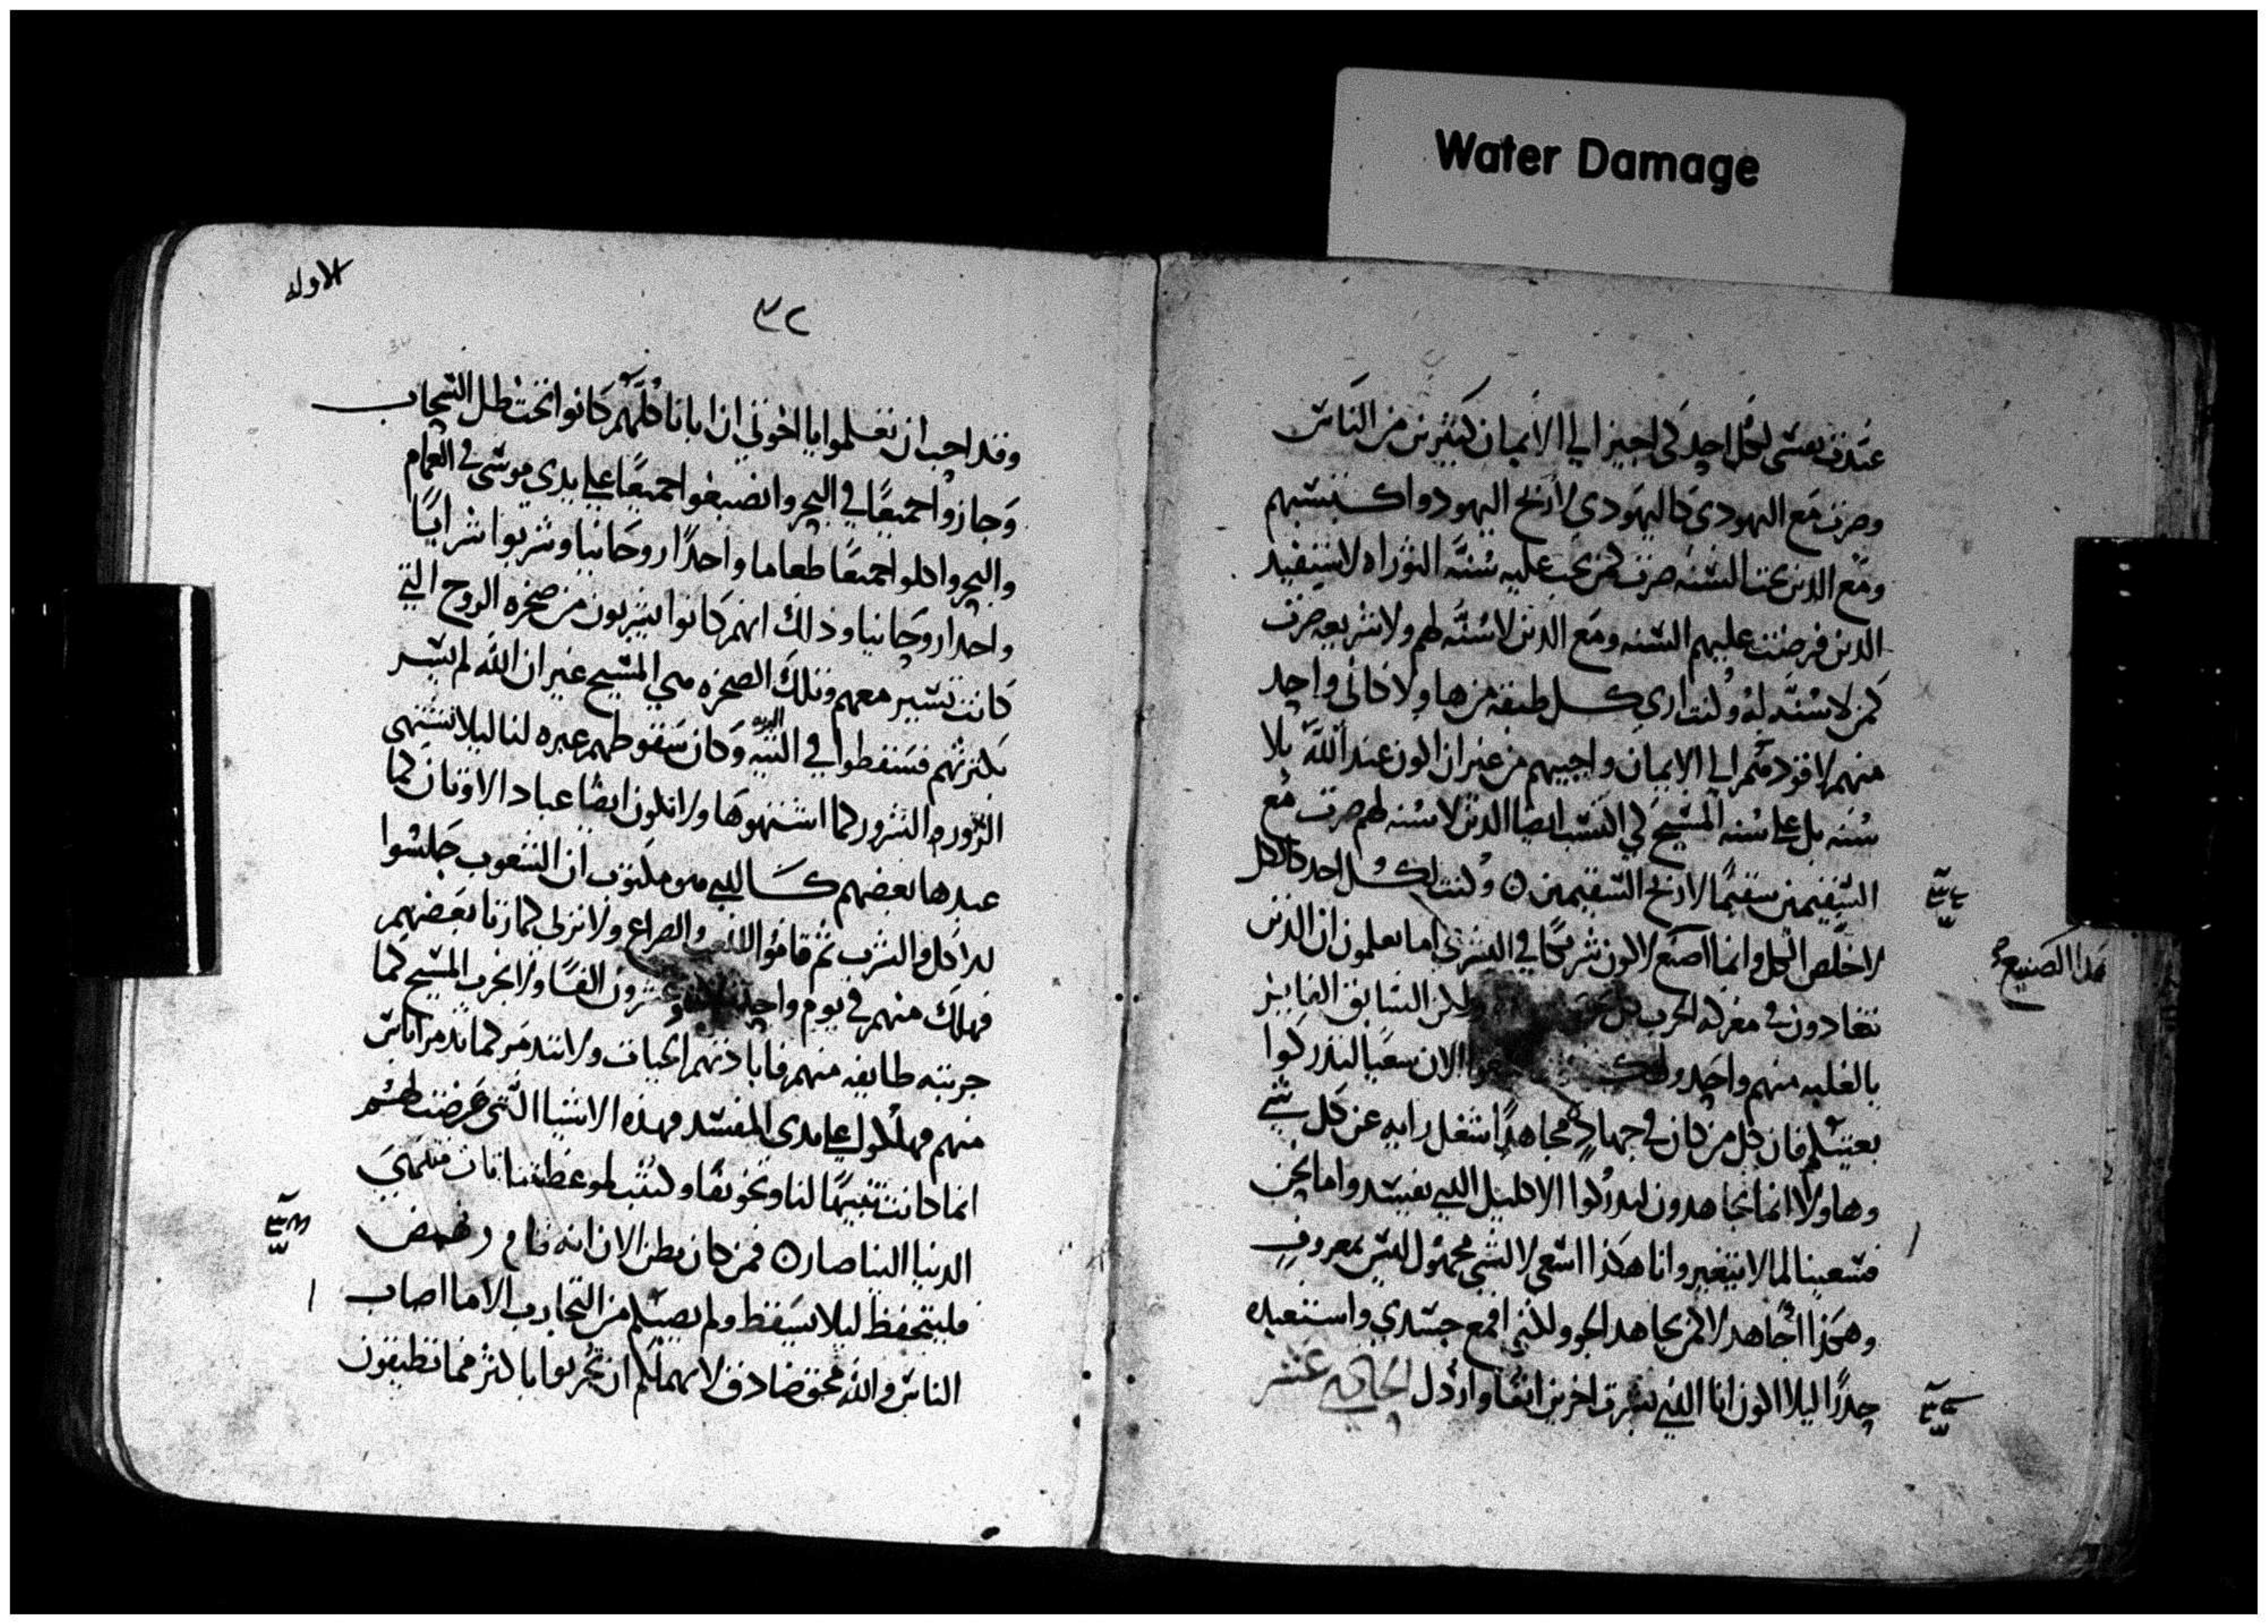 Water Damage
عبدت نفسي لكل احد لكي اجبر الي الايمان كثيرين من الناس
وصرت مع اليهودي كاليهودي لاربح اليهود واكتسبهم
ومع الذين تحت السنه صرت كمن تجب عليه سنة التوراه لاستفيد
الذين فرضت عليهم السنه ومع الذين لا سنة لهم ولا شريعه صرت
كمن لا سنة له وكنت اري كل طبقه من ها ولا كاني واحد
منهم لاقودهم الي الايمان واجيبهم من غير ان اكون عند الله بلا
سنه بل علي سنه المسيح لكي اكتسب ايضا الذين لا سنه لهم صرت مع
السقيمين سقيما لاربح السقيمين وكنت لكل احد كالكل
لاخلص الكل وانما اصنع لاكون شريكا في البشري اما تعلمون ان الذين
هذا الصنيع
يتعادون في معركه الحرب كل ولكن السابق الفايز
بالغلبه منهم واحد الان سعيا لتدركوا
بغيتكم فان كل من كان في جهاد مجاهدا شغل رايه عن كل شي
وهاولا انما يجاهدون ليدركوا الاكليل الذي يفسد واما نحن
فسعينا لما لا يتغير وانا هكذا اسعي لا لشي مجهول ليس بمعروف
وهكذا اجاهد لا كمن يجاهد الجو ولكني اقمع جسدي واستعبده
حذرا ليلا اكون انا الذي بشرت اخرين انفا وارذل الحادي عشر
الاوله
٣٢
وقد احب ان تعلموا يا اخوتي ان ابانا كلهم كانوا تحت ظل السحاب
وجازوا جميعا في البحر وانصبغوا جميعا علي يدي موسي في الغمام
والبحر واكلوا جميعا طعاما واحدا روحانيا وشربوا شرابا
واحدا روحانيا وذلك انهم كانوا يشربون من صخره الروح التي
كانت تسير معهم وتلك الصخره هي المسيح غير ان الله لم يسر
بكثرتهم فسقطوا في البريه وكان سقوطهم عبره لنا ليلا نشتهي
الشرور كما اشتهوها ولا نكون ايضا عباد الاوثان كما
عبدها بعضهم كالذي هو مكتوب ان الشعوب جلسوا
للاكل والشرب ثم قاموا للعب والصراع ولا نزني كما زنا بعضهم
فهلك منهم في يوم واحد وعشرون الفا ولا نجرب المسيح كما
جربته طايفه منهم فابادتهم الحيات ولا تتدمر كما تدمر اناس
منهم فهلكوا علي يدي المفسد فهذه الاشيا التي عرضت لهم
انما كانت تنبيها لنا وتخويفا وكتبت لموعظتنا فان منتهي
الدنيا الينا صار فمن كان يظن الان انه قام ونهض
فليتحفظ ليلا يسقط ولم يصبكم من التجارب الا ما اصاب
الناس والله محق صادق لا يهملكم ان تجربوا باكثر مما تطيقون